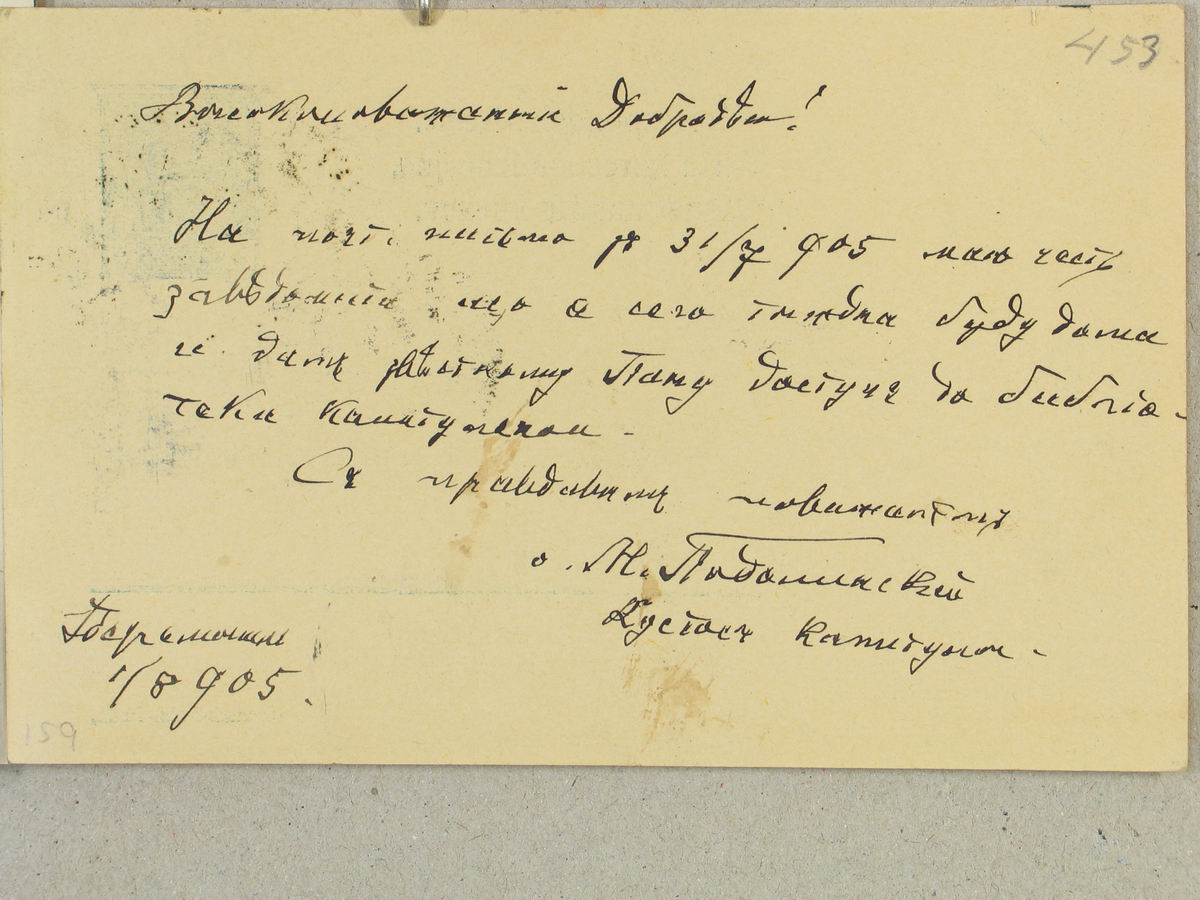 453
Високоповажаний Добродѣю!
На почт. письмо з 31/7 905 маю честь
завѣдомити що сего тиждня буду дома
и дамъ Пану доступъ до библіо-
теки капитульнои -
Съ правдивымъ поважаньемъ
о. М. Подолиньскій
Кустосъ капитулы -
Перемышль
1/8 905.
159